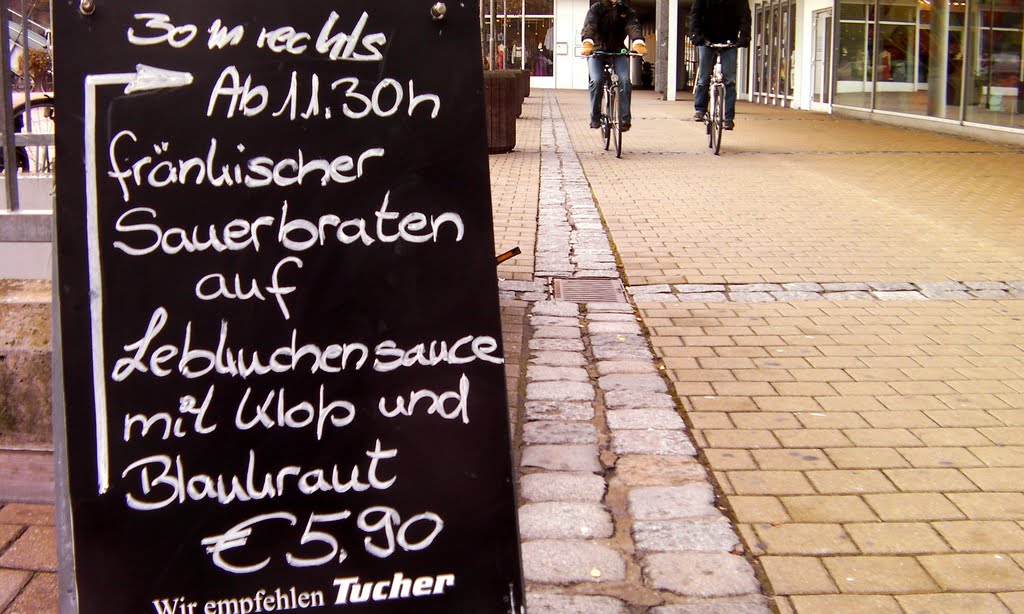 30 m rechts
Ab 11.30h
fränkischer
Sauerbraten
auf
Lebkuchensauce
mit Kloß und
Blaukraut
€ 5,90
Wir empfehlen Tucher